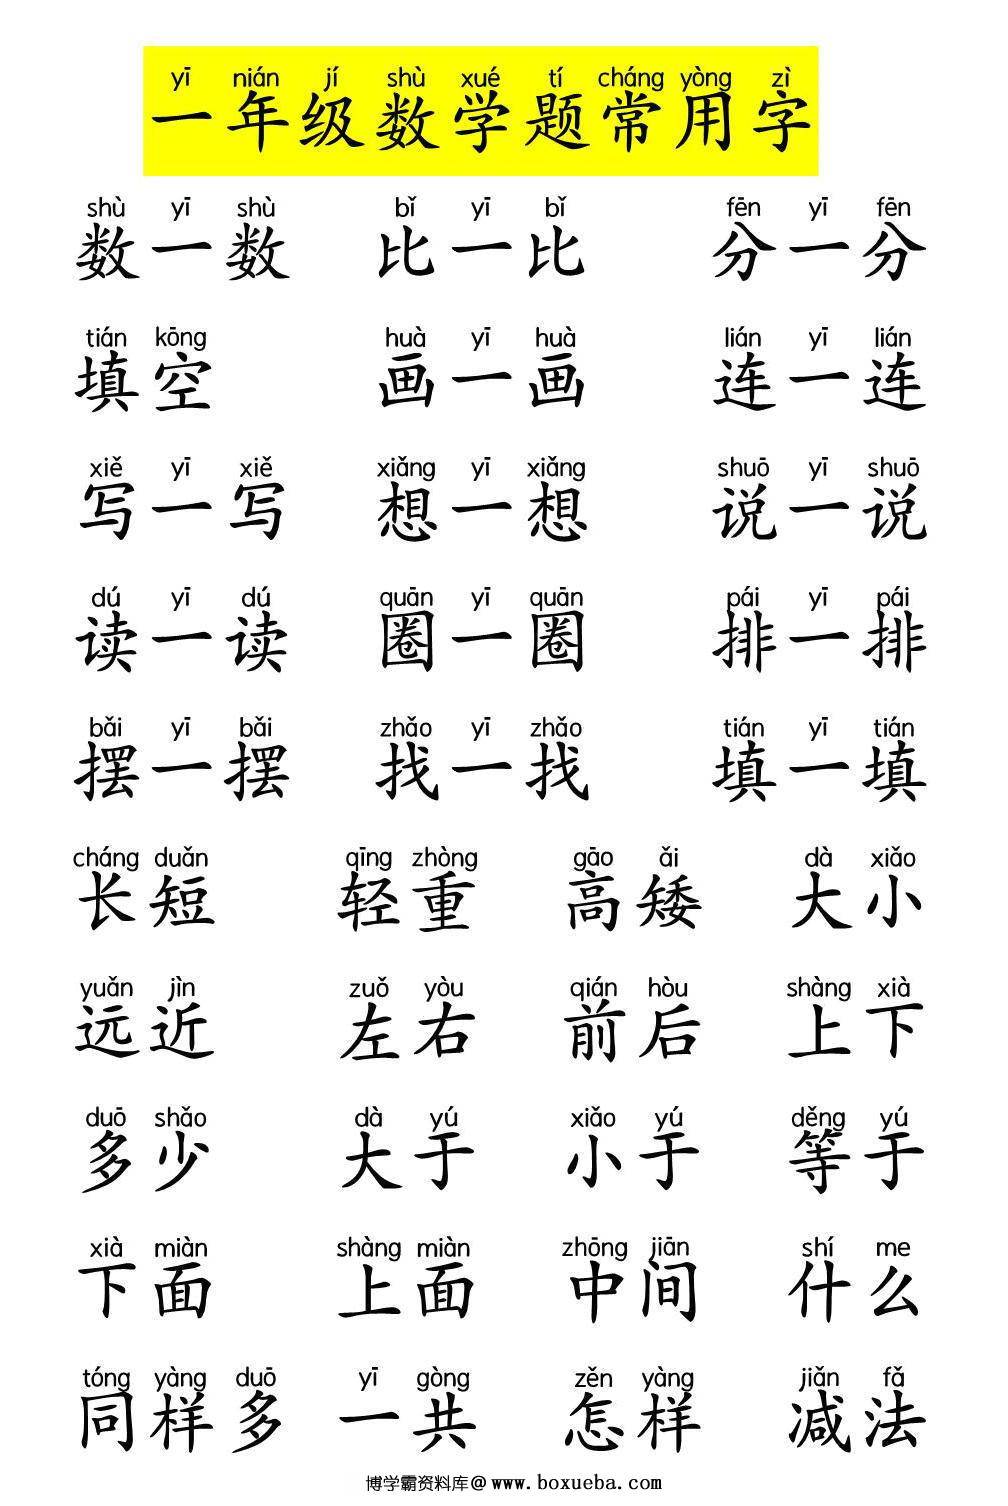 yī nián jí shù xué tí cháng yòng zì
一年级数学题常用字
shù yī shù bǐ yī bǐ fēn yī fēn
数一数 比一比 分一分
tián kōng huà yī huà lián yī lián
填空 画一画 连一连
xiě yī xiě xiǎng yī xiǎng shuō yī shuō
写一写 想一想 说一说
dú yī dú quān yī quān pái yī pái
读一读 圈一圈 排一排
bǎi yī bǎi zhǎo yī zhǎo tián yī tián
摆一摆 找一找 填一填
cháng duǎn qīng zhòng gāo ǎi dà xiǎo
长短 轻重 高矮 大小
yuǎn jìn zuǒ yòu qián hòu shàng xià
远近 左右 前后 上下
duō shǎo dà yú xiǎo yú děng yú
多少 大于 小于 等于
xià miàn shàng miàn zhōng jiān shí me
下面 上面 中间 什么
tóng yàng duō yī gòng zěn yàng jiǎn fǎ
同样多 一共 怎样 减法
博学霸资料库@ www.boxueba.com